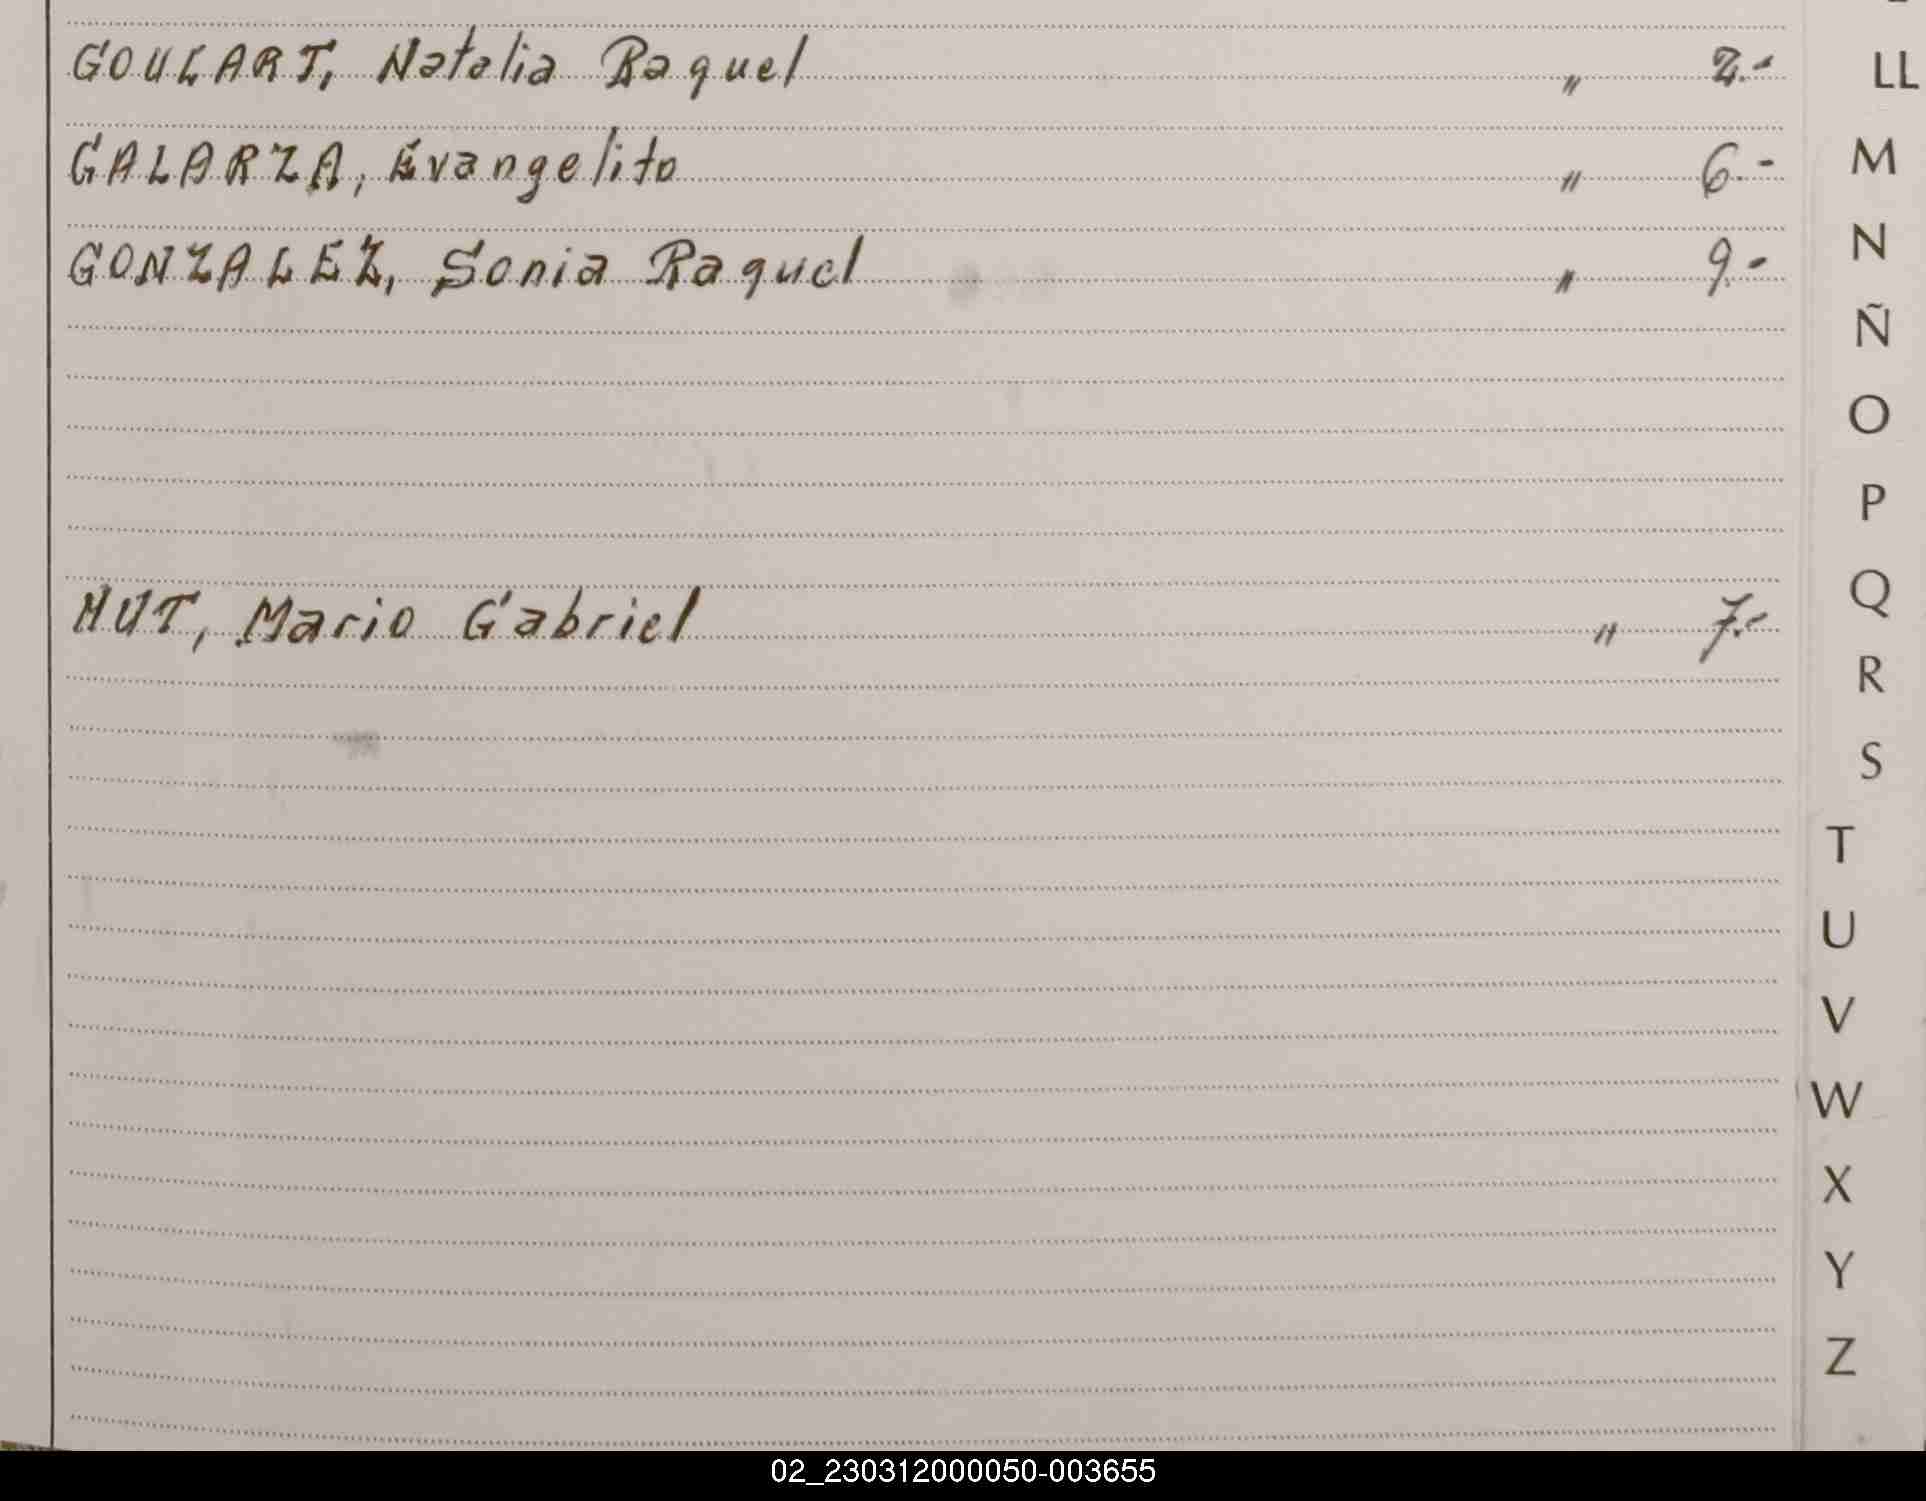 GOULART, Natalia Raquel " 2.-
GALARZA, Evangelito " 6.-
GONZALEZ, Sonia Raquel " 9.-
HUT, Mario Gabriel " 7.-
LL
M
N
Ñ
O
P
Q
R
S
T
U
V
W
X
Y
Z
02_230312000050-003655